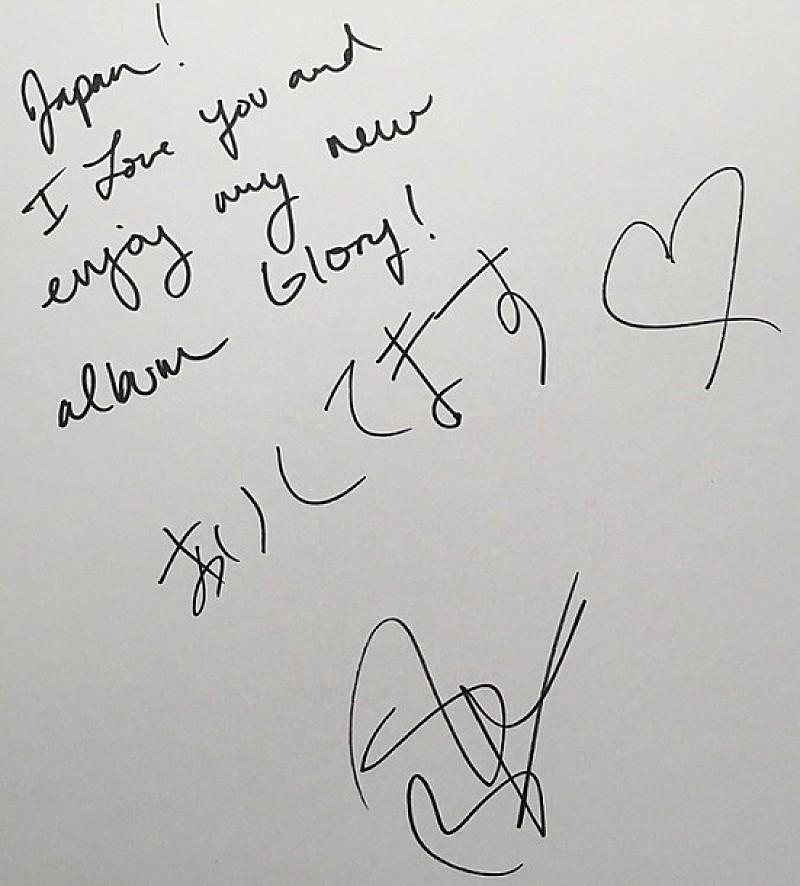 Japan!
I Love you and
enjoy my new
album Glory!
あいしてます